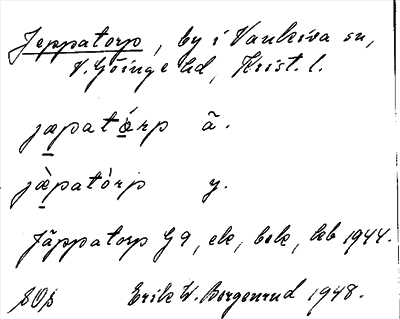 Jeppatorp, by i Vankiva sn,
V. Göinge hd, Krist. l.
japatórp ã.
jæ̀patórp y.
Jäppatorp G 9, ek, bek, hb 1944.
SOs Erik W. Bergenrud 1948.